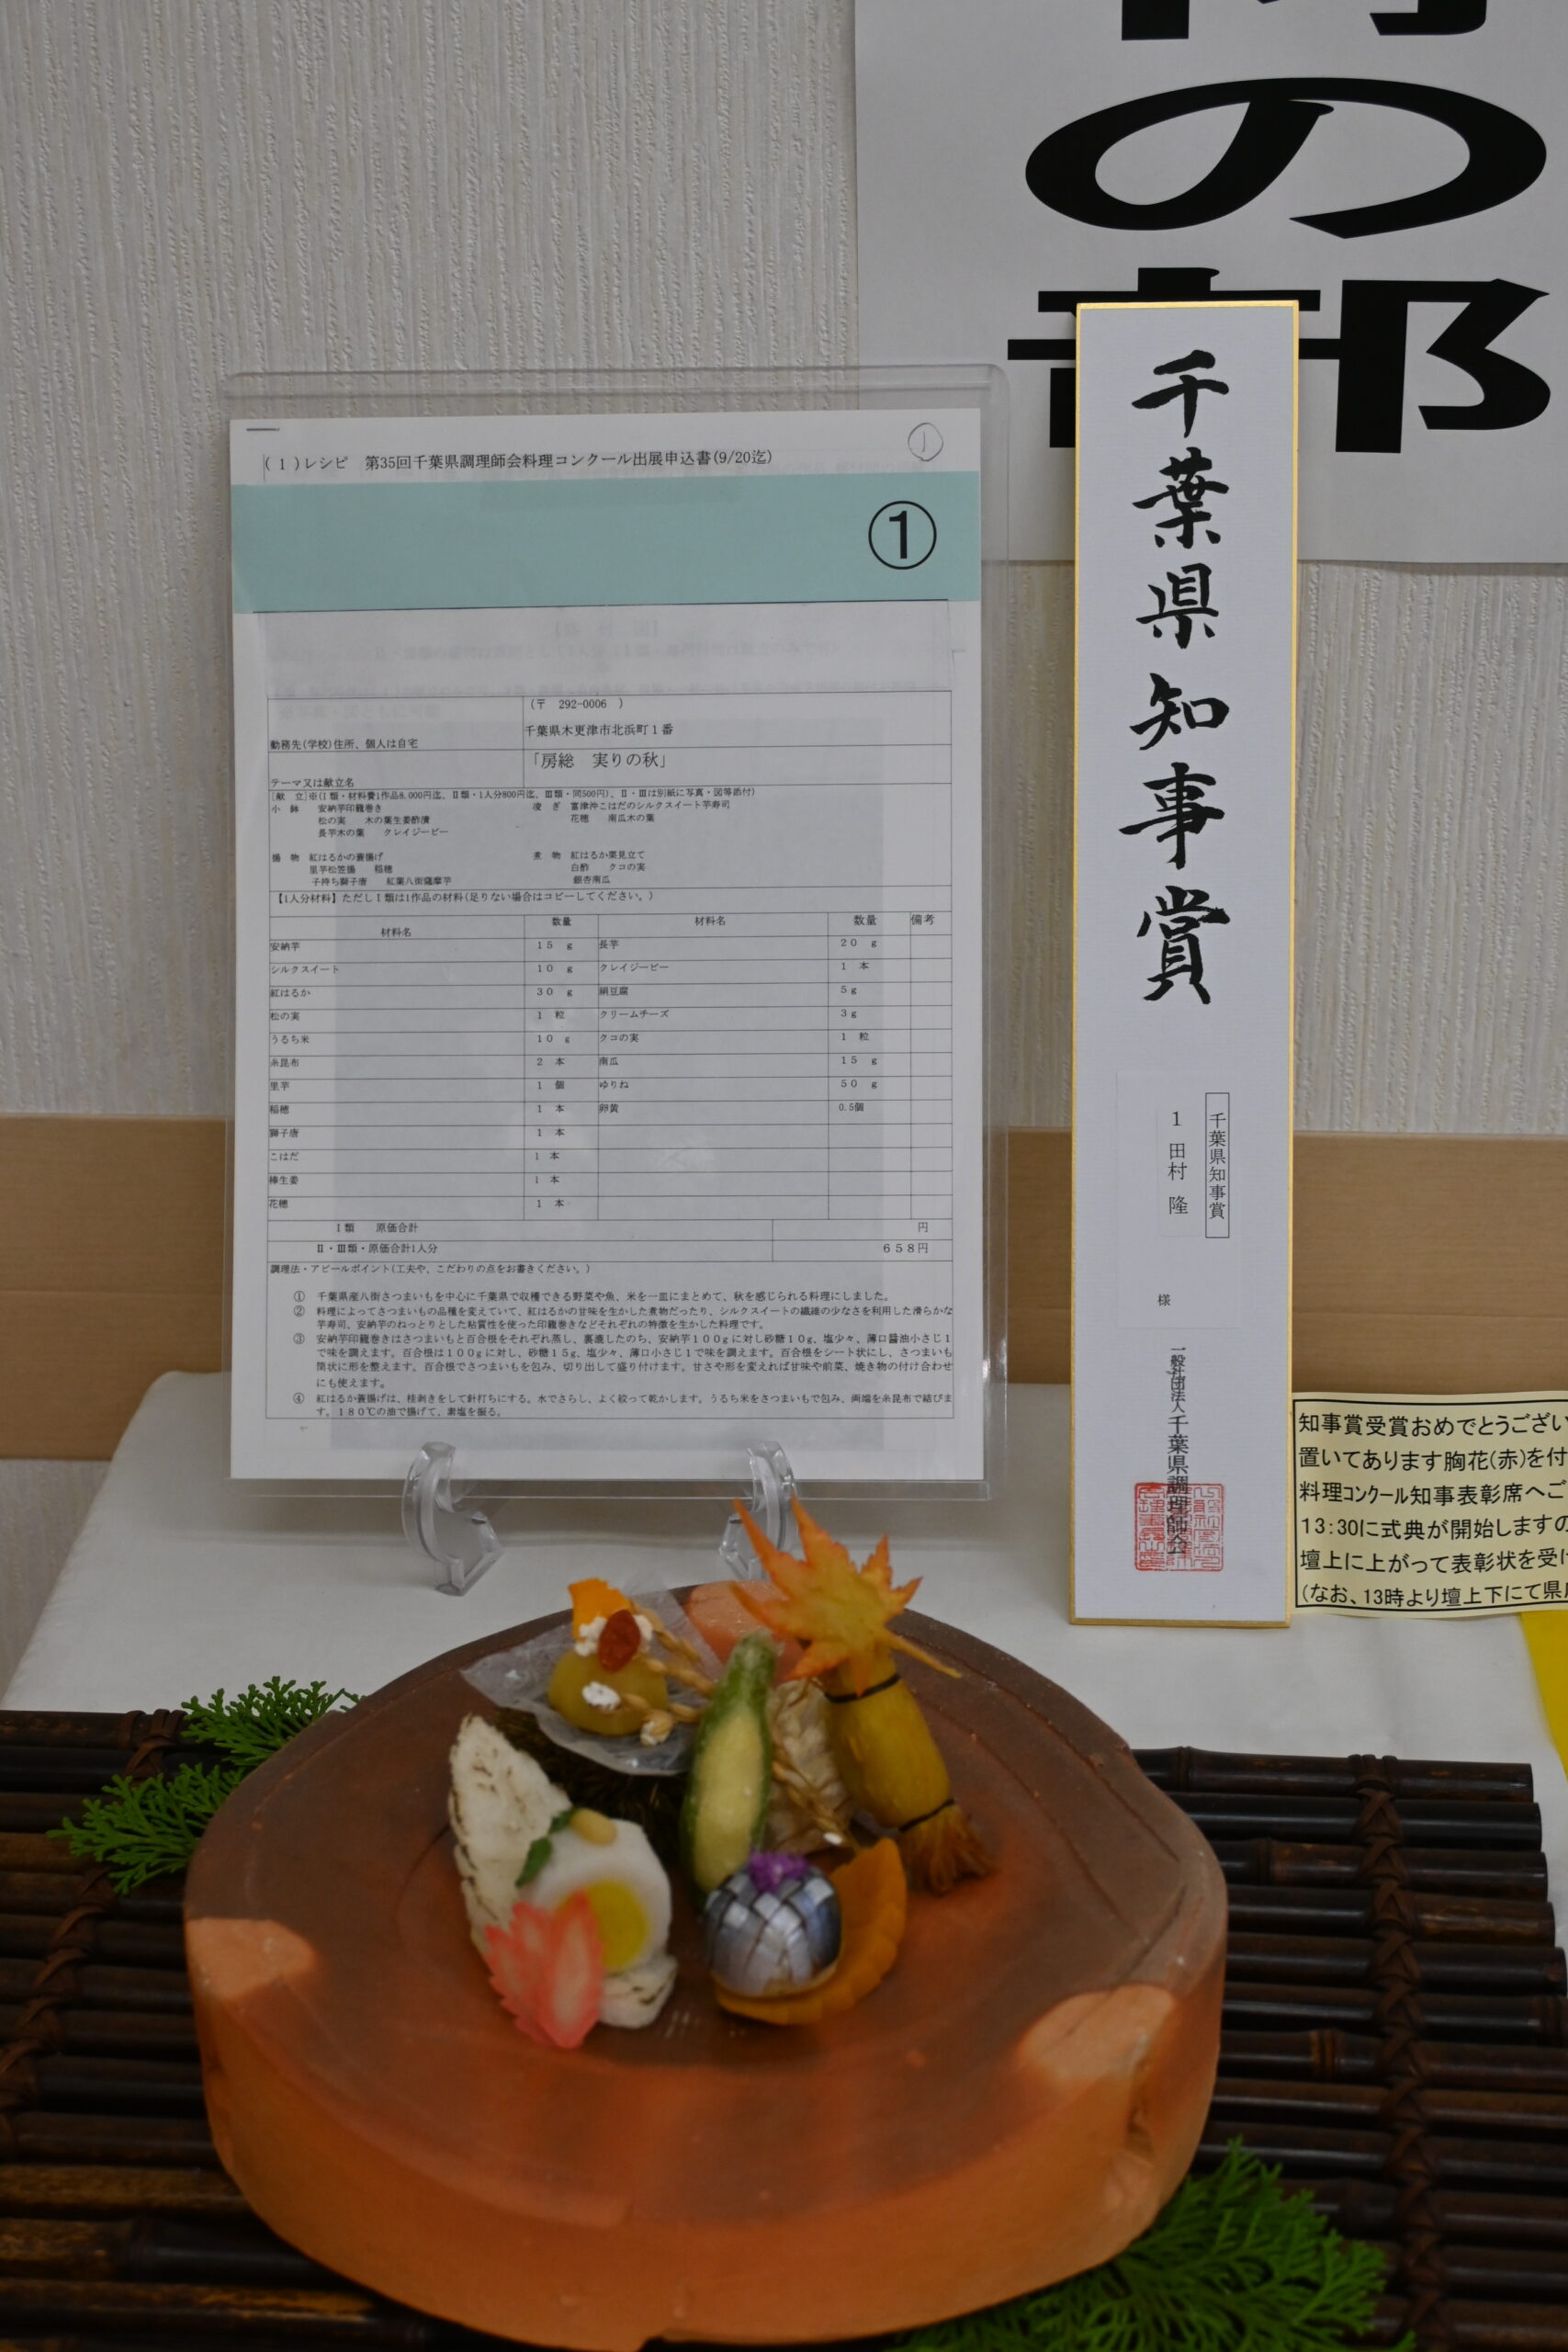 の部
(1)レシピ　第35回千葉県調理師会料理コンクール出展申込書(9/20迄)
①
①
勤務先(学校)住所、個人は自宅
(〒　292-0006　)
千葉県木更津市北浜町1番
テーマ又は献立名
「房総　実りの秋」
[献　立]※(Ⅰ類・材料費1作品8,000円迄、Ⅱ類・1人分800円迄、Ⅲ類・同500円)、Ⅱ・Ⅲは別紙に写真・図等添付)
小　鉢　安納芋印籠巻き
松の実　木の葉生姜酢漬
長芋木の葉　クレイジーピー
凌　ぎ　富津沖こはだのシルクスイート芋寿司
花穂　南瓜木の葉
揚　物　紅はるかの蓑揚げ
里芋松笠揚　稲穂
子持ち獅子唐　紅葉八街薩摩芋
煮　物　紅はるか栗見立て
白酢　クコの実
銀杏南瓜
【1人分材料】ただしⅠ類は1作品の材料(足りない場合はコピーしてください。)
材料名　数量　材料名　数量　備考
安納芋　15　g　長芋　20　g
シルクスイート　10　g　クレイジーピー　1　本
紅はるか　30　g　絹豆腐　5g
松の実　1　粒　クリームチーズ　3g
うるち米　10　g　クコの実　1　粒
糸昆布　2　本　南瓜　15　g
里芋　1　個　ゆりね　50　g
稲穂　1　本　卵黄　0.5個
獅子唐　1　本
こはだ　1　本
棒生姜　1　本
花穂　1　本
Ⅰ類　原価合計　円
Ⅱ・Ⅲ類・原価合計1人分　658円
調理法・アピールポイント(工夫や、こだわりの点をお書きください。)
①　千葉県産八街さつまいもを中心に千葉県で収穫できる野菜や魚、米を一皿にまとめて、秋を感じられる料理にしました。
②　料理によってさつまいもの品種を変えていて、紅はるかの甘味を生かした煮物だったり、シルクスイートの繊維の少なさを利用した滑らかな
芋寿司、安納芋のねっとりとした粘質性を使った印籠巻きなどそれぞれの特徴を生かした料理です。
③　安納芋印籠巻きはさつまいもと百合根をそれぞれ蒸し、裏漉したのち、安納芋100gに対し砂糖10g、塩少々、薄口醤油小さじ1
で味を調えます。百合根は100gに対し、砂糖15g、塩少々、薄口小さじ1で味を調えます。百合根をシート状にし、さつまいも
筒状に形を整えます。百合根でさつまいもを包み、切り出して盛り付けます。甘さや形を変えれば甘味や前菜、焼き物の付け合わせ
にも使えます。
④　紅はるか蓑揚げは、桂剥きをして針打ちにする。水でさらし、よく絞って乾かします。うるち米をさつまいもで包み、両端を糸昆布で結びま
す。180℃の油で揚げて、素塩を振る。
千葉県知事賞
千葉県知事賞
1　田村　隆
様
一般社団法人千葉県調理師会
知事賞受賞おめでとうござい
置いてあります胸花(赤)を付
料理コンクール知事表彰席へご
13:30に式典が開始しますの
壇上に上がって表彰状を受け
(なお、13時より壇上下にて県